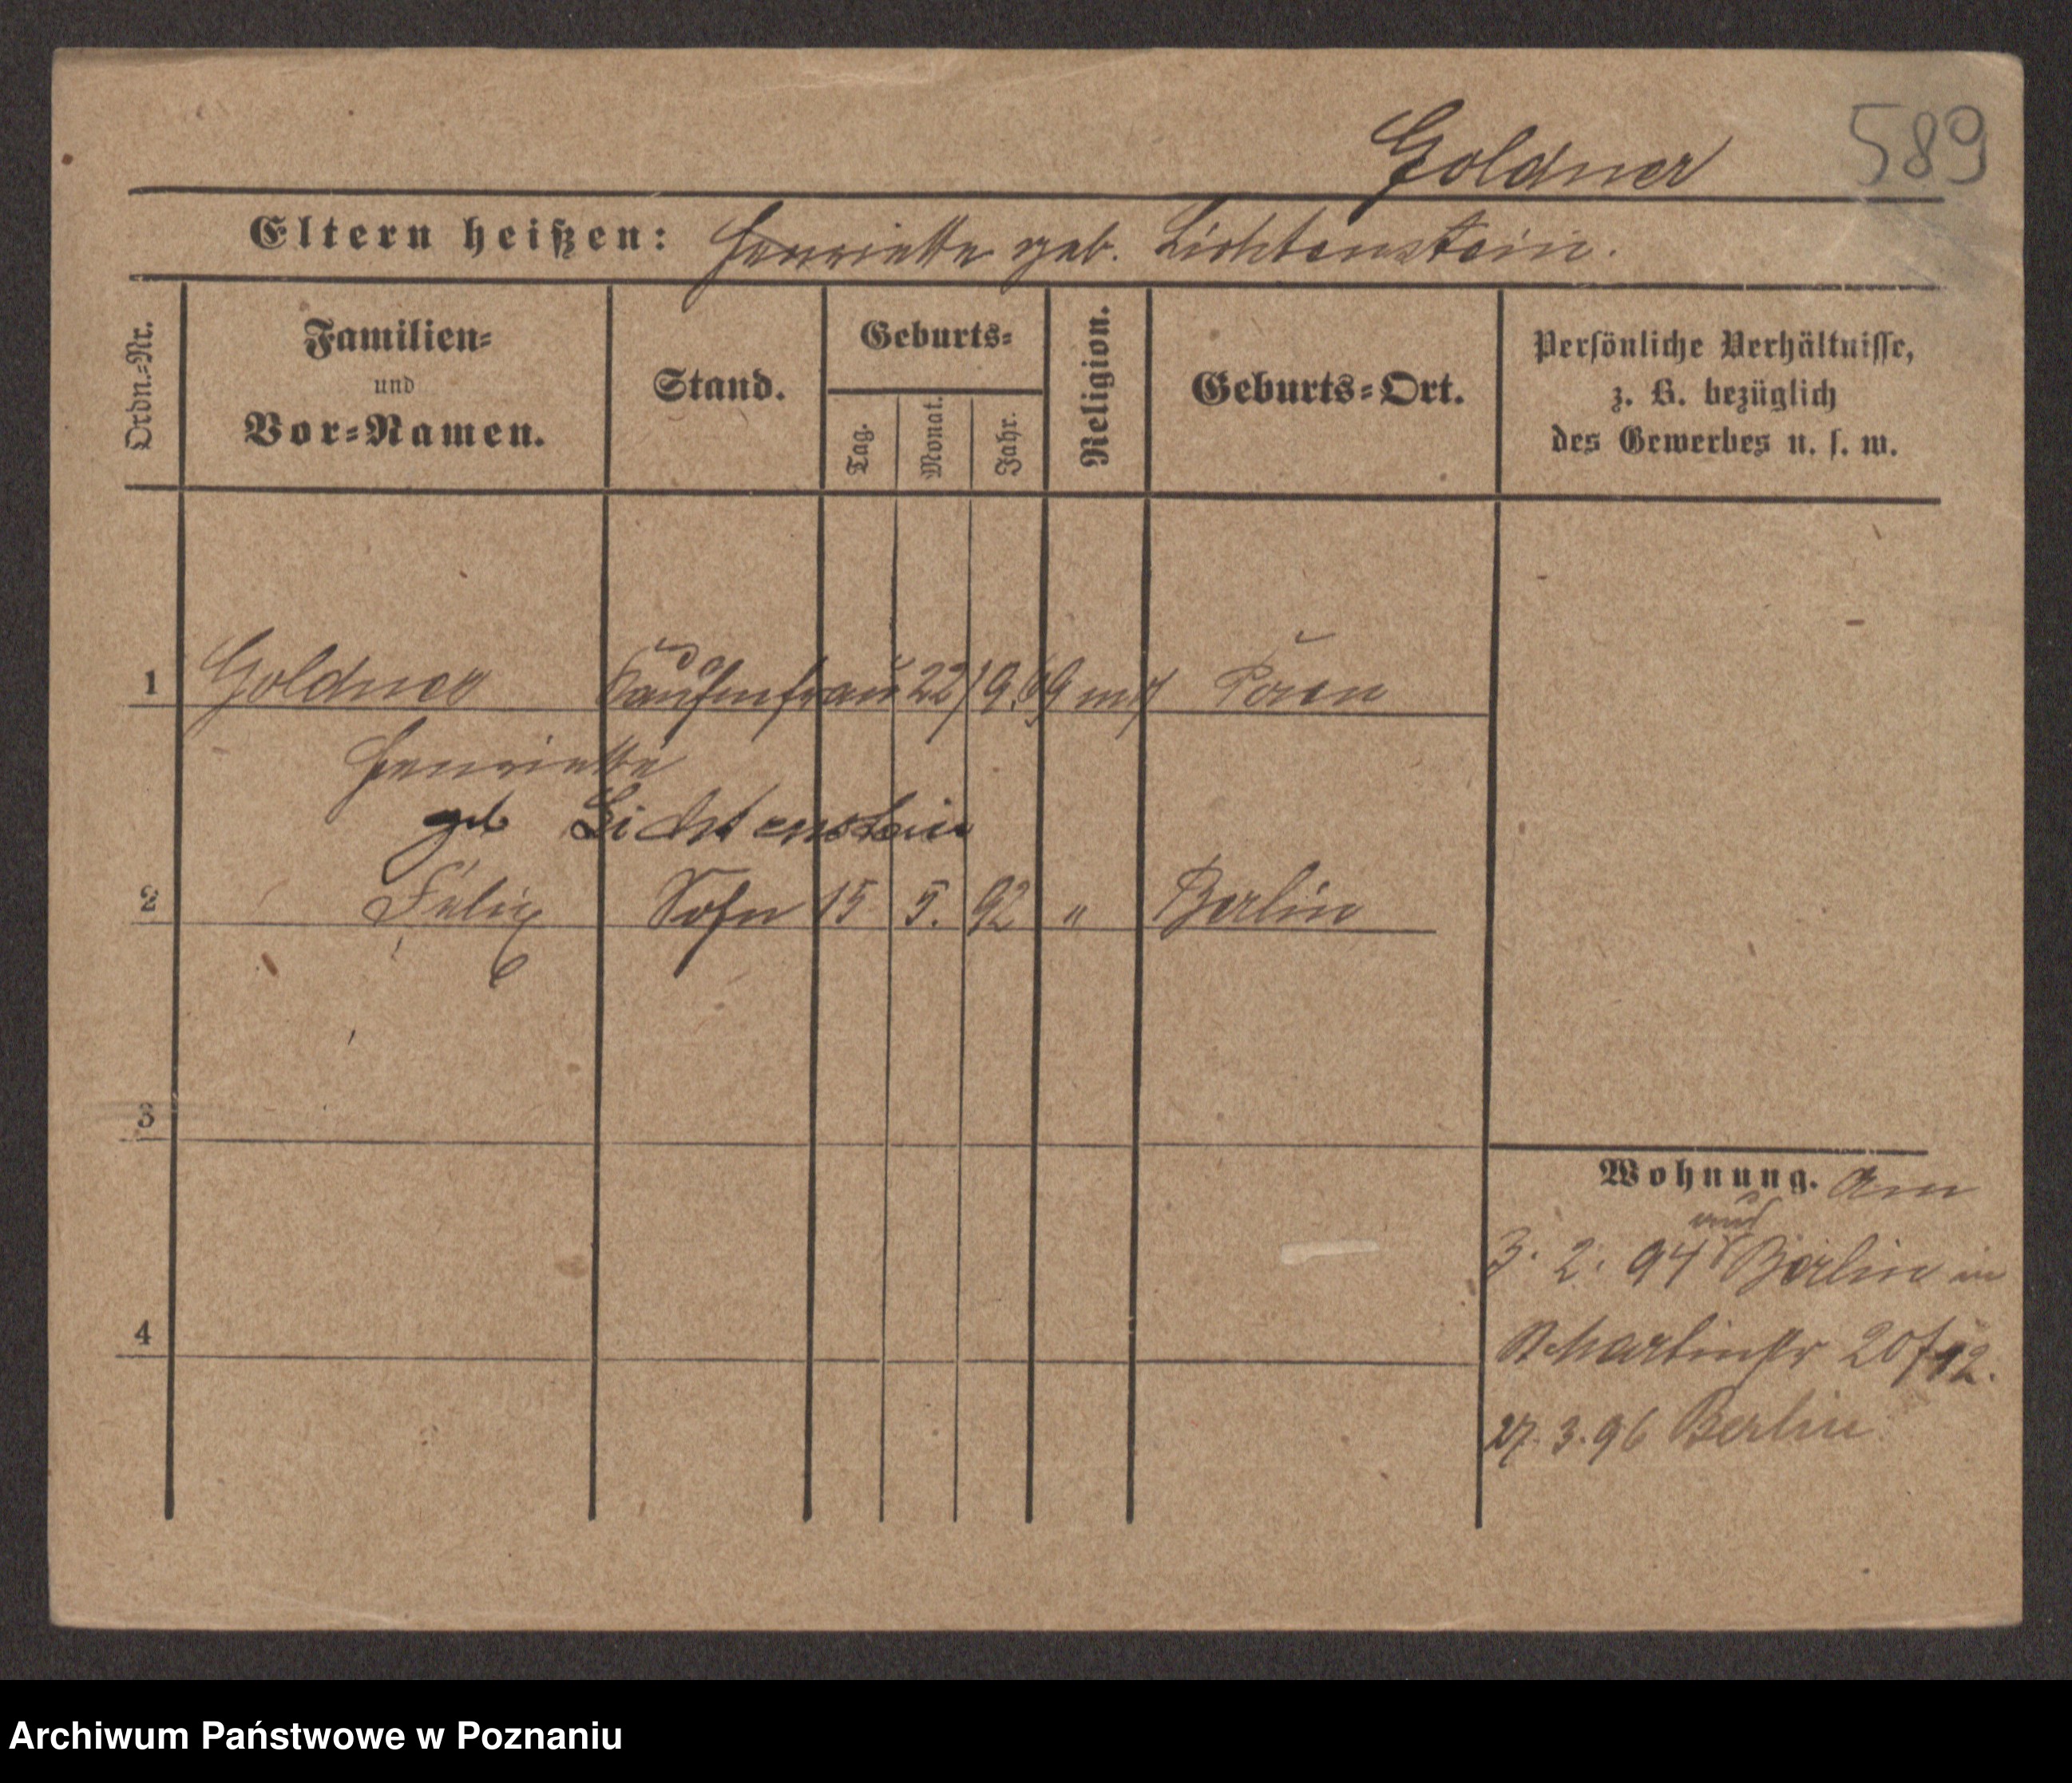 Goldner 589
Eltern heißen: Henriette geb. Lichtenstein.
Ordn.-Nr.
Familien-
und
Vor-Namen.
Stand.
Geburts-
Tag.
Monat.
Jahr.
Religion.
Geburts-Ort.
Persönliche Verhältnisse,
z. B. bezüglich
des Gewerbes u. s. w.
1 Goldner Kaufmfrau 22/9.69 Posen
Henriette
geb Lichtenstein
2 Felix Sohn 15 5. 92 " Berlin
3
4
Wohnung. Am
3. 2. 94 aus Berlin in
St Martinstr 20/12.
27. 3. 96 Berlin
Archiwum Państwowe w Poznaniu